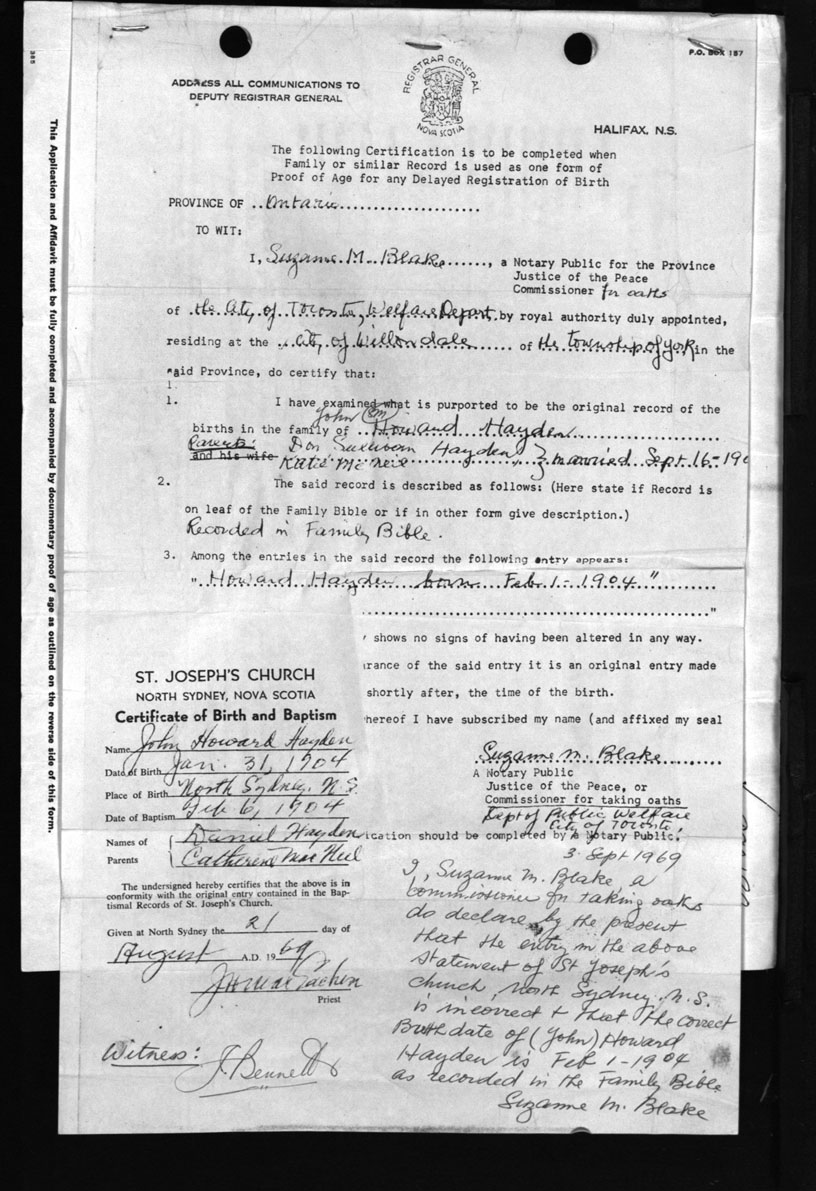 365
P.O. BOX 187
This Application and Affidavit must be fully completed and accompanied by documentary proof of age as outlined on the reverse side of this form.
ADDRESS ALL COMMUNICATIONS TO
DEPUTY REGISTRAR GENERAL
REGISTRAR GENERAL
NOVA SCOTIA
HALIFAX, N.S.
The following Certification is to be completed when
Family or similar Record is used as one form of
Proof of Age for any Delayed Registration of Birth
PROVINCE OF ..Ontario......................
TO WIT:
I, Suzanne M. Blake......, a Notary Public for the Province
Justice of the Peace
Commissioner for oaths
of the City of Toronto, Welfare Depart. by royal authority duly appointed,
residing at the ..City of Willowdale...... of the township of York in the
said Province, do certify that:
1.
1. I have examined what is purported to be the original record of the
John (M)
births in the family of ..Howard Hayden..................
Parents: Dan Sullivan Hayden
and his wife Katie McNeil } married Sept 16-190
2. The said record is described as follows: (Here state if Record is
on leaf of the Family Bible or if in other form give description.)
Recorded in Family Bible.
3. Among the entries in the said record the following entry appears:
"Howard Hayden born Feb 1-1904"........
......................................"
shows no signs of having been altered in any way.
rance of the said entry it is an original entry made
shortly after, the time of the birth.
hereof I have subscribed my name (and affixed my seal
Suzanne M. Blake
A Notary Public
Justice of the Peace, or
Commissioner for taking oaths
Dept of Public Welfare
City of Toronto.
ication should be completed by a Notary Public.
3 Sept 1969
ST. JOSEPH'S CHURCH
NORTH SYDNEY, NOVA SCOTIA
Certificate of Birth and Baptism
Name John Howard Hayden
Date of Birth Jan. 31, 1904
Place of Birth North Sydney, N.S.
Date of Baptism Feb 6, 1904
Names of Parents { Daniel Hayden
Catherine MacNeil
The undersigned hereby certifies that the above is in
conformity with the original entry contained in the Bap-
tismal Records of St. Joseph's Church.
Given at North Sydney the 21 day of
August A.D. 1969
Priest
Witness: J. Bennett
I, Suzanne M. Blake, a
commissioner for taking oaths
do declare by the present
that the entry in the above
statement of St Joseph's
church, North Sydney, N.S.
is incorrect & that the correct
Birthdate of (John) Howard
Hayden is Feb 1-1904
as recorded in the Family Bible
Suzanne M. Blake